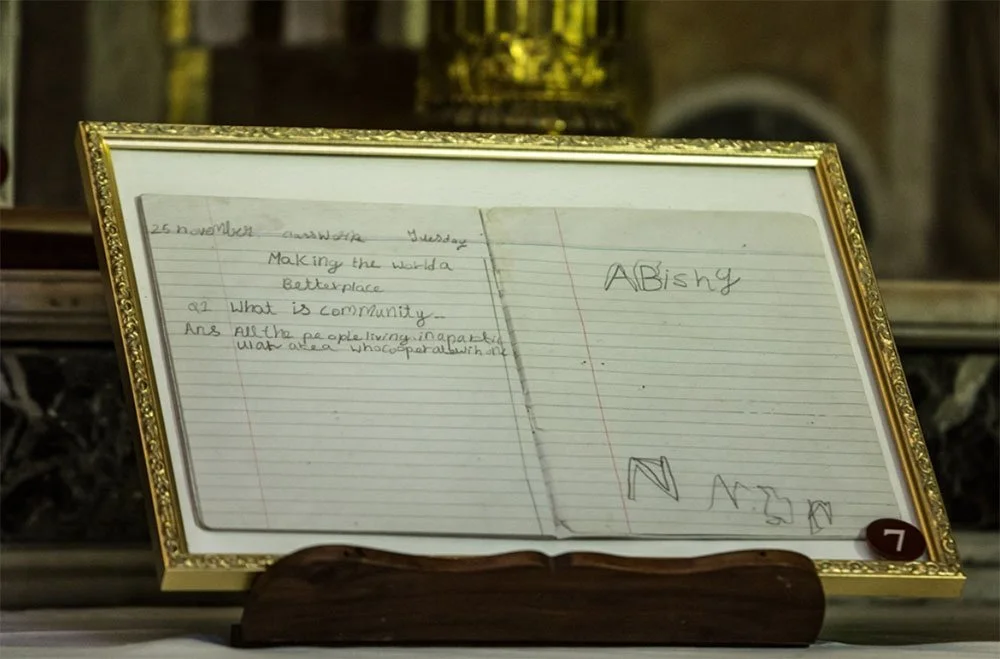 25 november classwork Tuesday
Making the world a
Betterplace
Q1 What is community
Ans All the people living in apartic
ular area whocooperatewith one
ABishy
N
7